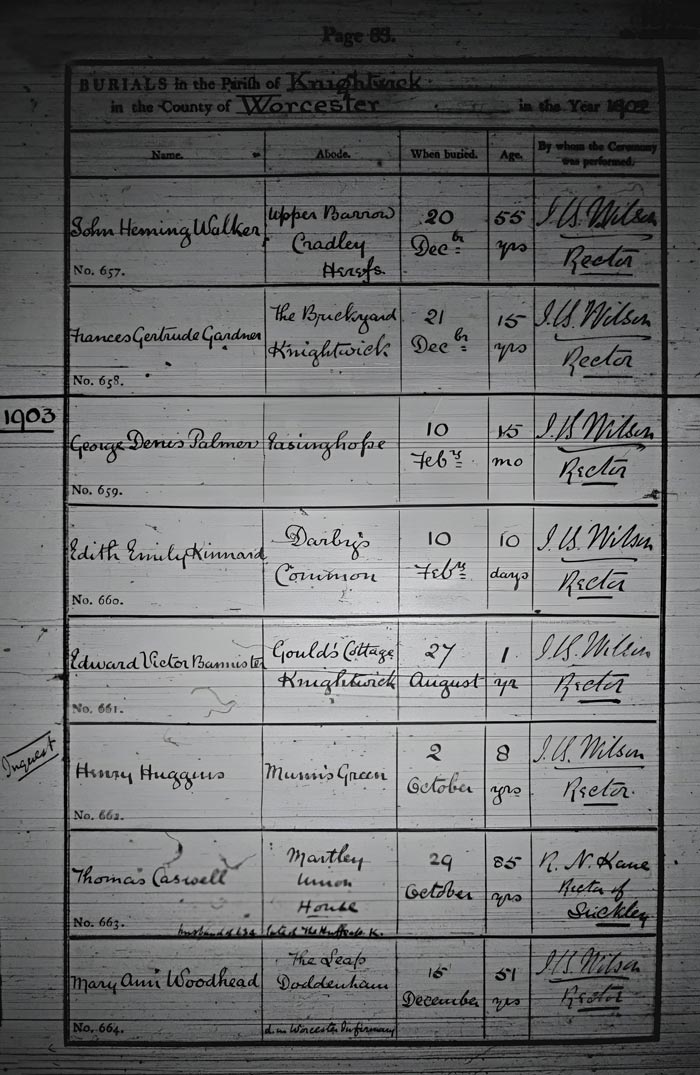 Page 83.
BURIALS in the Parish of Knightwick
in the County of Worcester in the Year 1902
Name. Abode. When buried. Age. By whom the Ceremony was performed.
John Heming Walker
No. 657.
Upper Barrow
Cradley
Herefs.
20
Decbr
55
yrs
J. B. Wilson
Rector
Frances Gertrude Gardner
No. 658.
The Brickyard
Knightwick
21
Decbr
15
yrs
J. B. Wilson
Rector
1903
George Denis Palmer
No. 659.
10
Febry
15
mo
J. B. Wilson
Rector
Edith Emily Kinnard
No. 660.
Darby's
Common
10
Febry
10
days
J. B. Wilson
Rector
Edward Victor Bannister
No. 661.
Gould's Cottage
Knightwick
27
August
1
yr
J. B. Wilson
Rector
Inquest
Henry Huggins
No. 662.
Munn's Green
2
October
8
yrs
J. B. Wilson
Rector.
Thomas Caswell
No. 663.
Martley
Union
House
husband of late of The
29
October
85
yrs
R. N. Kane
Rector of
Suckley
Mary Ann Woodhead
No. 664.
The Leap
Doddenham
d. in Worcester Infirmary
15
December
51
yrs
J. B. Wilson
Rector